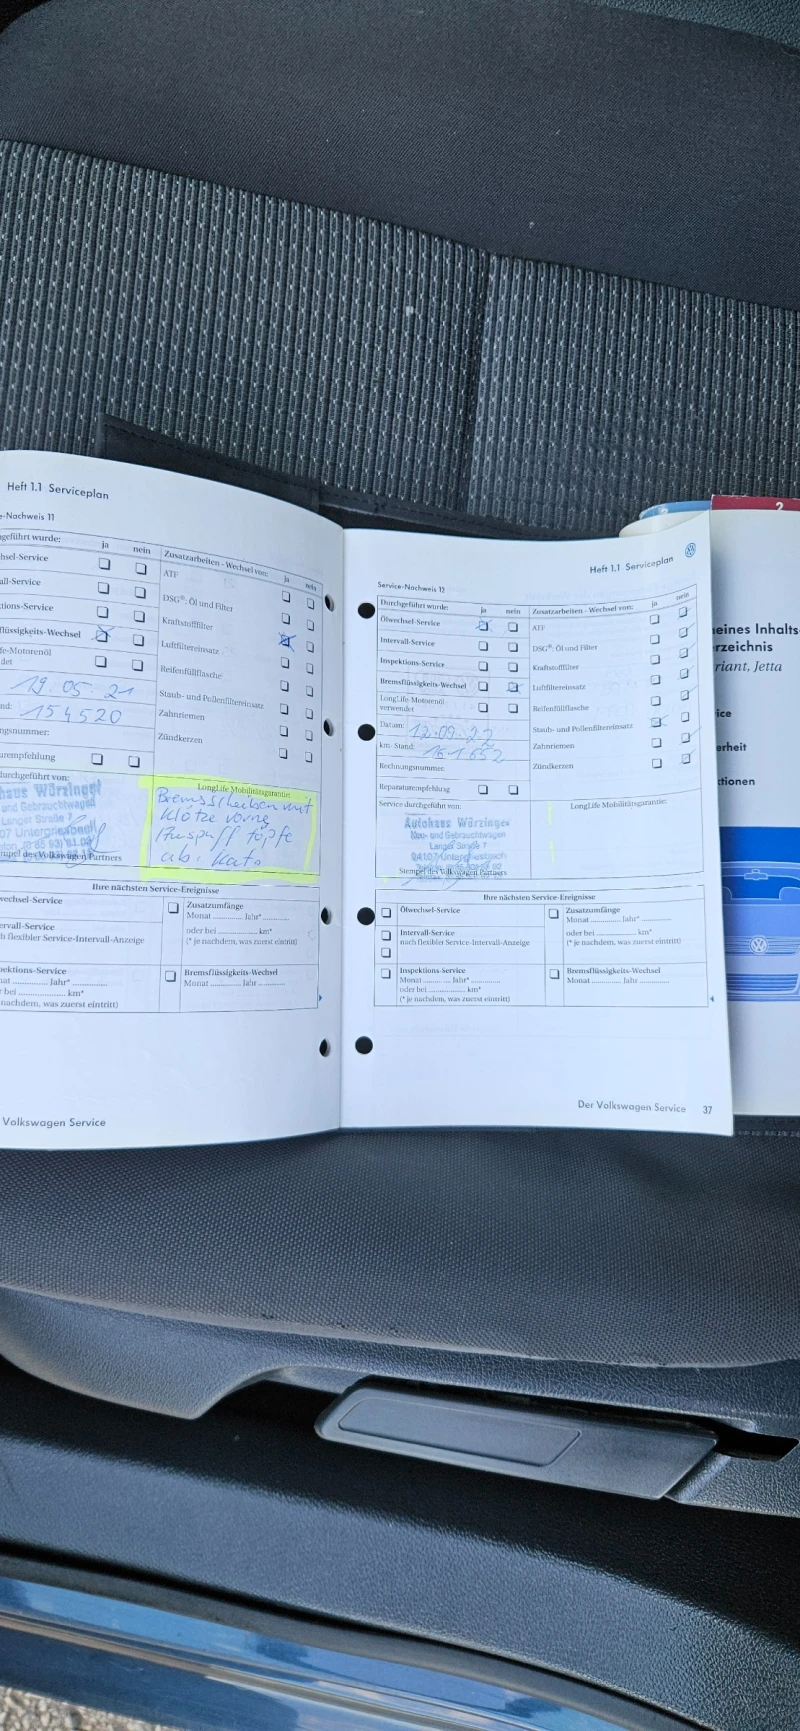 Heft 1.1 Serviceplan
e-Nachweis 11
geführt wurde:
ja
nein
hsel-Service
all-Service
tions-Service
flüssigkeits-Wechsel
fe-Motorenöl
det
19.05.21
nd: 154520
ngsnummer:
urempfehlung
durchgeführt von:
haus Würzinger
und Gebrauchtwagen
Langer Straße 7
07 Untergriesbach
Stempel des Volkswagen Partners
Zusatzarbeiten - Wechsel von:
ja
nein
ATF
DSG®: Öl und Filter
Kraftstofffilter
Luftfiltereinsatz
Reifenfüllflasche
Staub- und Pollenfiltereinsatz
Zahnriemen
Zündkerzen
LongLife Mobilitätsgarantie:
Bremsscheiben mit
Klötze vorne
Auspuff töpfe
ab. Kat.
Ihre nächsten Service-Ereignisse
wechsel-Service
ervall-Service
h flexibler Service-Intervall-Anzeige
pektions-Service
nat ............. Jahr* .............
r bei ............. km*
nachdem, was zuerst eintritt)
Zusatzumfänge
Monat ............. Jahr* .............
oder bei ............. km*
(* je nachdem, was zuerst eintritt)
Bremsflüssigkeits-Wechsel
Monat ............. Jahr .............
Volkswagen Service
Heft 1.1 Serviceplan
Service-Nachweis 12
Durchgeführt wurde:
ja
nein
Ölwechsel-Service
Intervall-Service
Inspektions-Service
Bremsflüssigkeits-Wechsel
LongLife-Motorenöl
verwendet
Datum: 12.09.22
km-Stand: 161652
Rechnungsnummer:
Reparaturempfehlung
Service durchgeführt von:
Autohaus Würzinger
Neu- und Gebrauchtwagen
Langer Straße 7
94107 Untergriesbach
Stempel des Volkswagen Partners
Zusatzarbeiten - Wechsel von:
ja
nein
ATF
DSG®: Öl und Filter
Kraftstofffilter
Luftfiltereinsatz
Reifenfüllflasche
Staub- und Pollenfiltereinsatz
Zahnriemen
Zündkerzen
LongLife Mobilitätsgarantie:
Ihre nächsten Service-Ereignisse
Ölwechsel-Service
Intervall-Service
nach flexibler Service-Intervall-Anzeige
Inspektions-Service
Monat ............. Jahr* .............
oder bei ............. km*
(* je nachdem, was zuerst eintritt)
Zusatzumfänge
Monat ............. Jahr* .............
oder bei ............. km*
(* je nachdem, was zuerst eintritt)
Bremsflüssigkeits-Wechsel
Monat ............. Jahr .............
Der Volkswagen Service 37
2
eines Inhalts-
rzeichnis
riant, Jetta
ice
erheit
ktionen